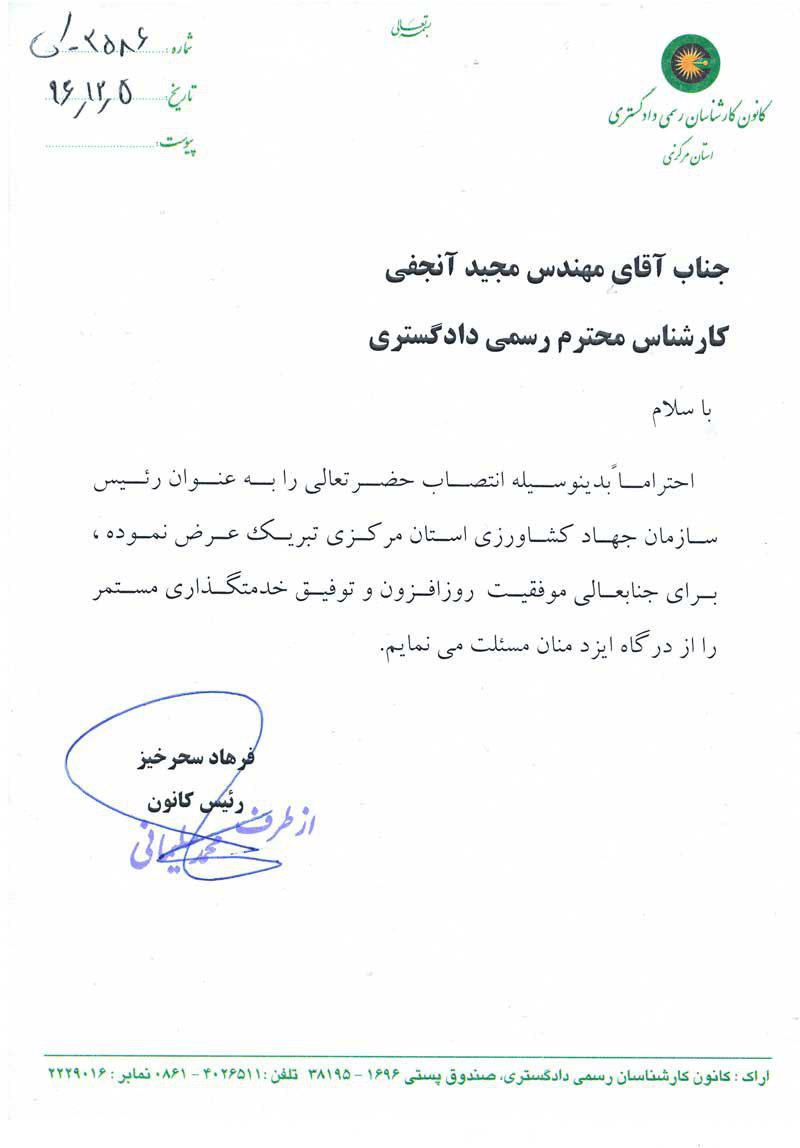 بسمه تعالی
کانون کارشناسان رسمی دادگستری
استان مرکزی
شماره :
تاریخ : ۹۶,۱۲,۵
پیوست :
جناب آقای مهندس مجید آنجفی
کارشناس محترم رسمی دادگستری
با سلام
احتراماً بدینوسیله انتصاب حضرتعالی را به عنوان رئیس
سازمان جهاد کشاورزی استان مرکزی تبریک عرض نموده ،
برای جنابعالی موفقیت روزافزون و توفیق خدمتگذاری مستمر
را از درگاه ایزد منان مسئلت می نمایم.
فرهاد سحرخیز
رئیس کانون
از طرف
محمد سلیمانی
اراک : کانون کارشناسان رسمی دادگستری، صندوق پستی ۱۶۹۶ - ۳۸۱۹۵ تلفن : ۴۰۲۶۵۱۱ - ۰۸۶۱ نمابر : ۲۲۲۹۰۱۶